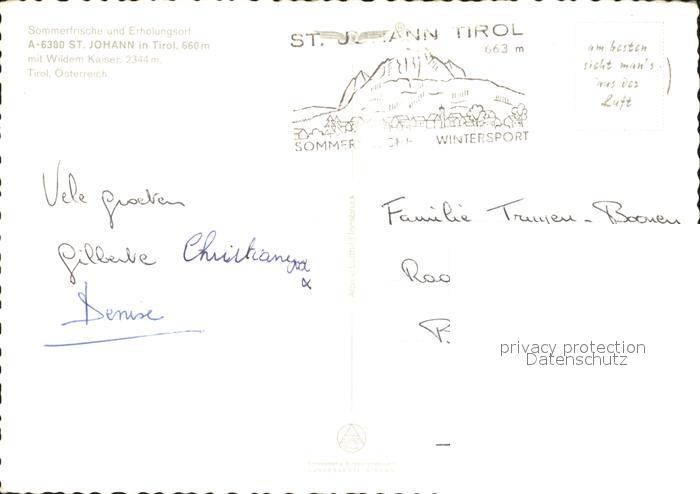 Sommerfrische und Erholungsort
A-6380 ST. JOHANN in Tirol, 660m
mit Wildem Kaiser, 2344m,
Tirol, Österreich
ST. JOHANN TIROL
663 m
SOMMER WINTERSPORT
am besten
sieht man's
aus der
Luft
Vele groeten
Gilberte Christiane
Denise
Familie Truyen - Boonen
privacy protection
Datenschutz